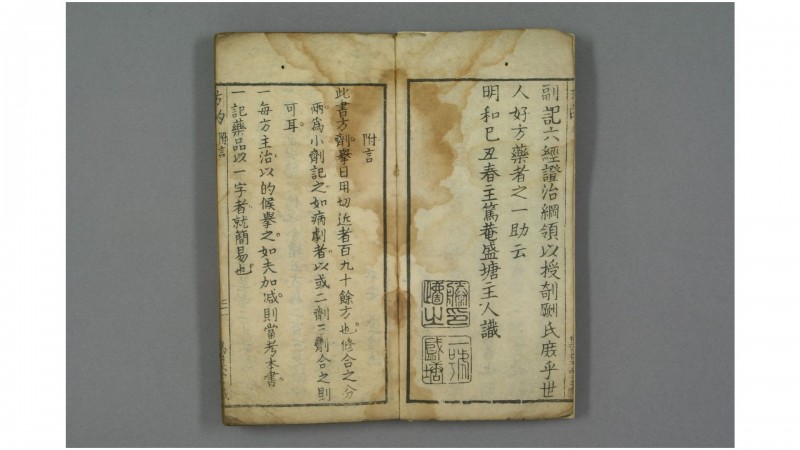 副記六經證治綱領以授剞劂氏庶乎世
人好方藥者之一助云
明和己丑春主篤菴盛塘主人識
附言
此書方劑擧日用切近者百九十餘方也修合之分
兩爲小劑記之如病劇者以或二劑三劑合之則
可耳
一每方主治以的候擧之如夫加减則當考本書
一記藥品以一字者就簡易也
附言